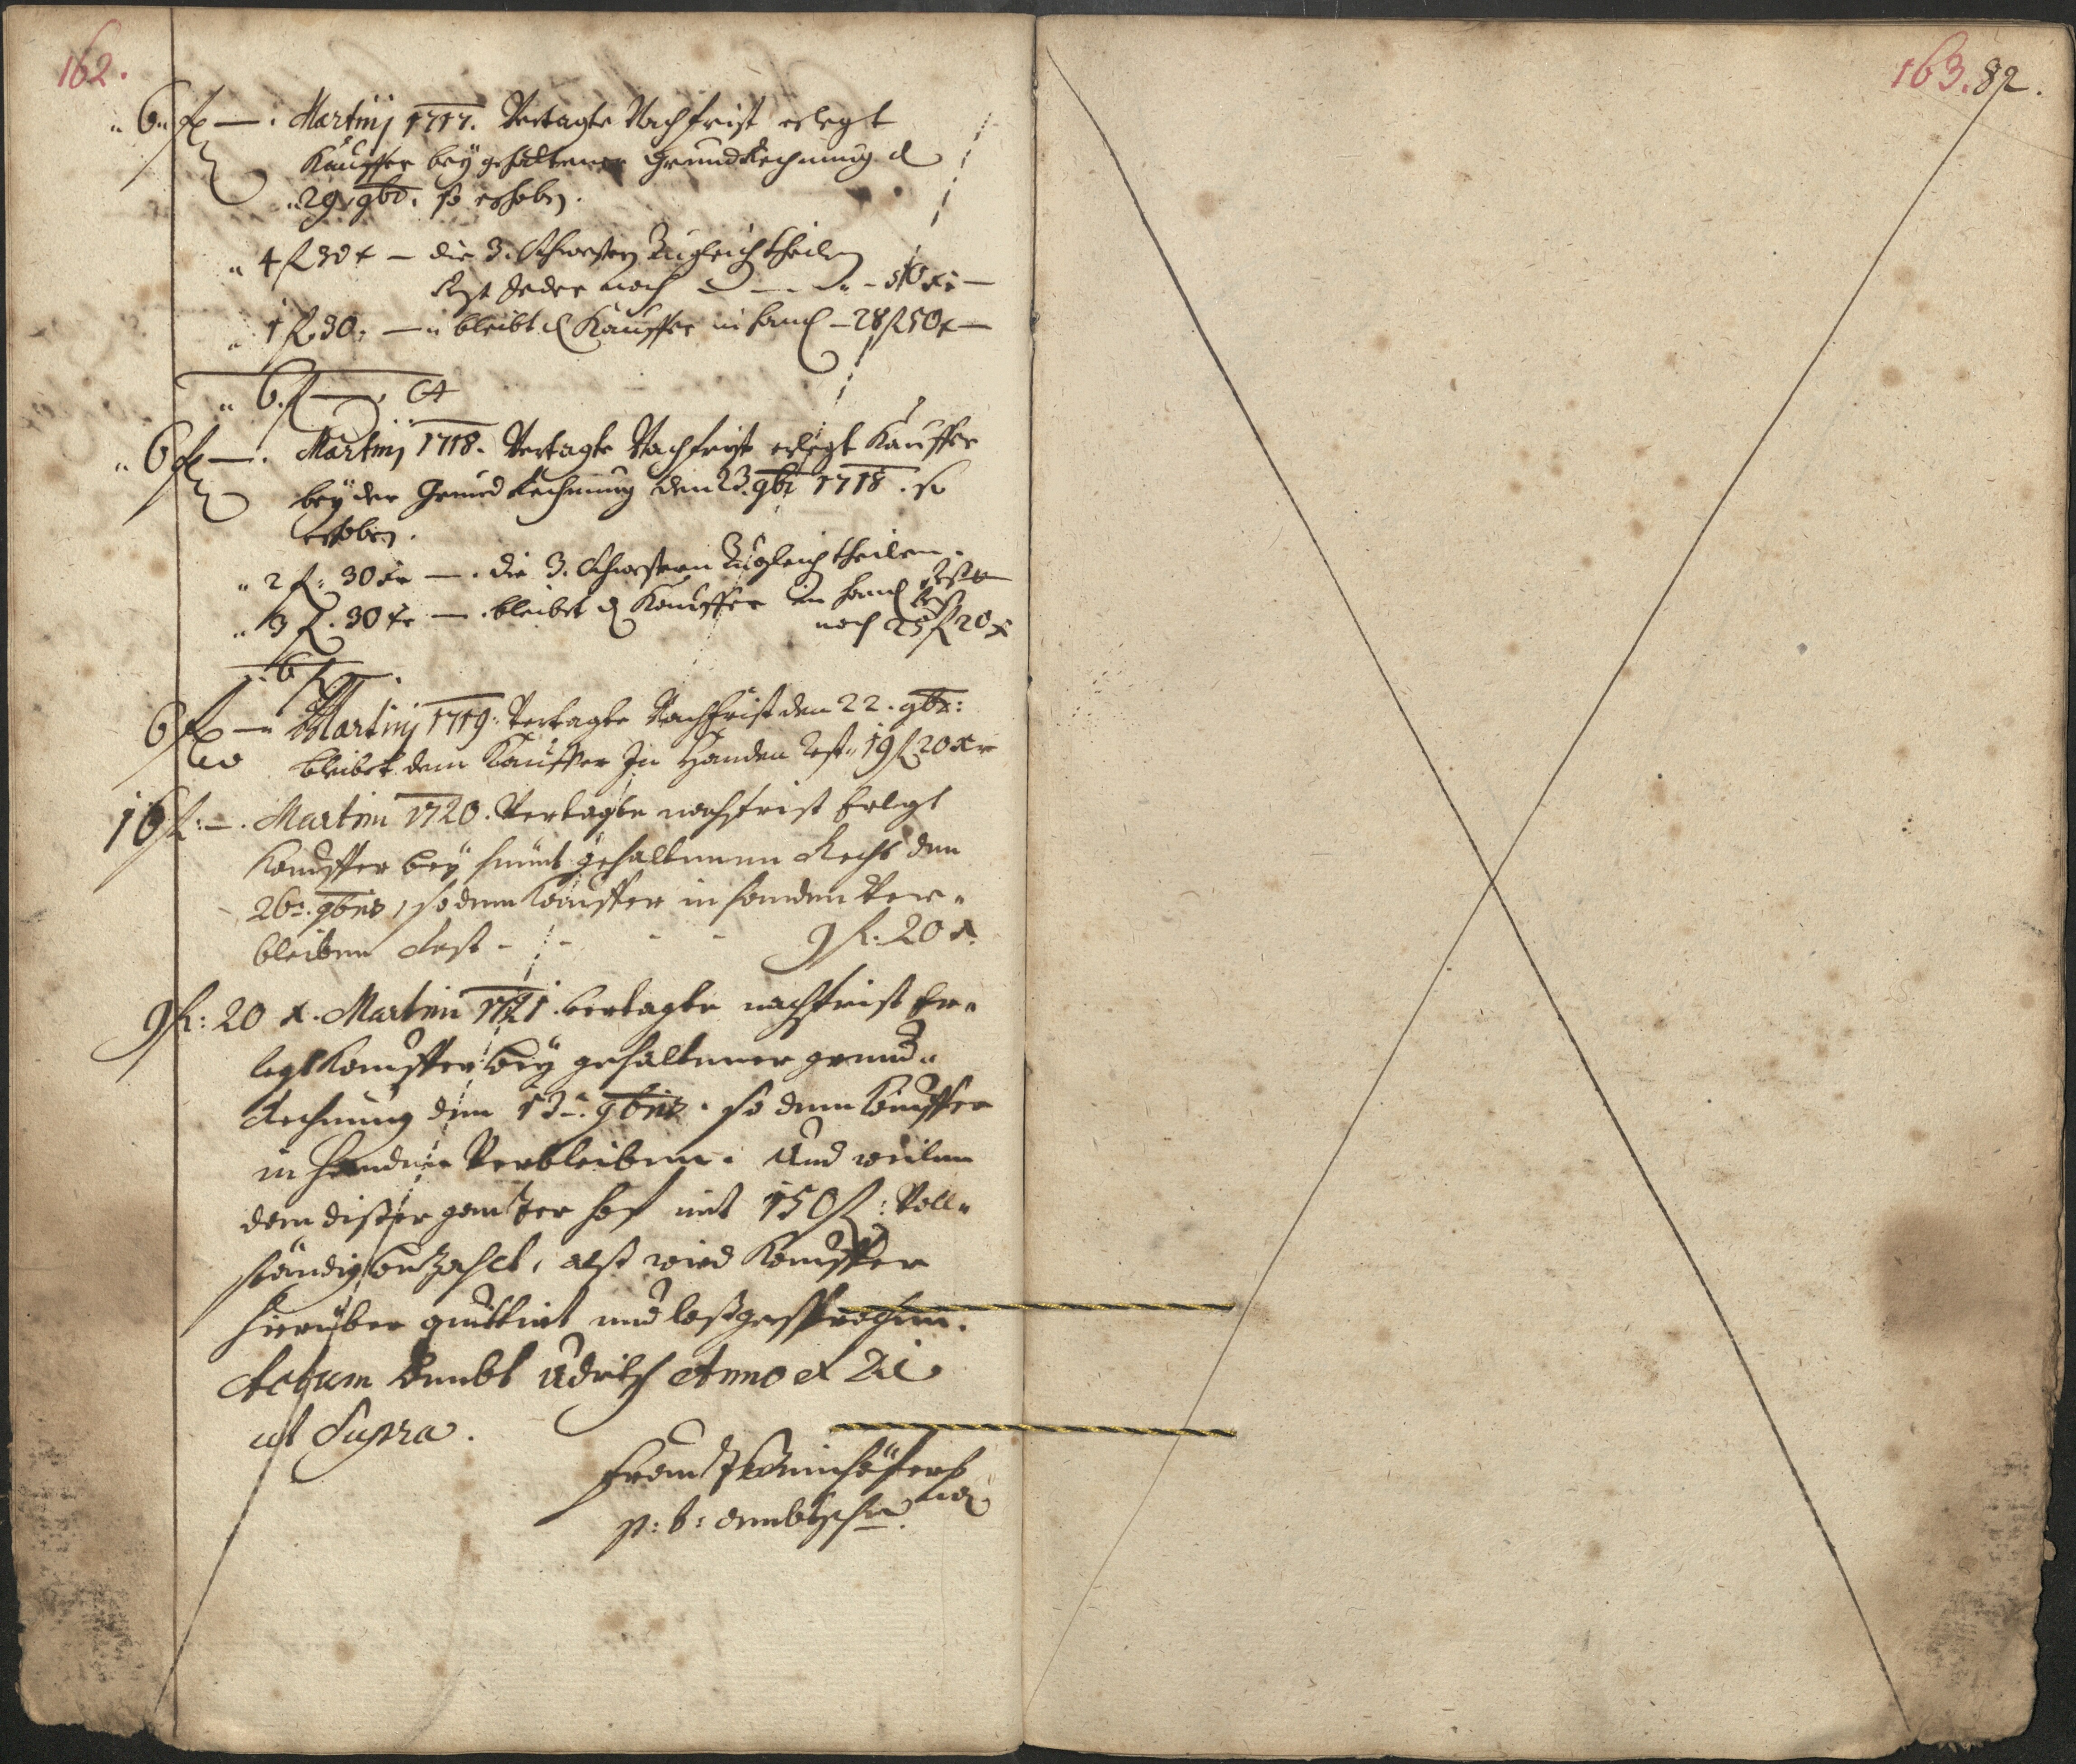 162.
" 6 " fl — : Martinj 1717. Vertagte Nachfrist erlegt
Kauffer bey gehaltener Grund Rechnung d
" 29. 9br. so erhoben.
" 4 fl 30 x — die 3. Schwestern zugleich theilen
Rest Jeder noch — — — 10 xr —
" 1 fl 30: — " bleibt d Kauffer in hand — 28 fl 50 x —
" 6. fl —
" 6 fl — . Martinj 1718. Vertagte Nachfrist erlegt Kauffer
bey der Grund Rechnung den 23. 9br 1718. so
erhoben.
" 2 fl: 30 xr — . die 3. Schwestern zugleich theilen.
" 3 fl. 30 xr — . bleibet d Kauffer in hand Rest
noch 25 fl 20 x
6 fl
6 fl — " Martinj 1719: Vertagte Nachfrist den 22. 9br:
bleibet dem Kauffer Jn Handen Rest " 19 fl 20 xr
10 fl: — . Martini 1720. Vertagte nachfrist Erlegt
Kauffer bey heünt gehaltenen Rechs den
26: 9bris, so dem Kauffer in handen Ver-
bleiben Rest - - - - 9 fl: 20 x.
9 fl: 20 x. Martini 1721. vertagte nachfrist Er-
legt Kauffer bey gehaltener grund-
Rechnung den 13: 9bris. so dem Kauffer
in Handen Verbleiben. Und weilen
dem disßer gantzer hof mit 150 fl: Voll-
ständig bezahlt, alß wird Kauffer
hierüber quittirt und loßgesprochen.
Actum Ambt Udritsch Anno et Die
ut Supra.
Frantz
p: t: Ambtschr
163. 82.